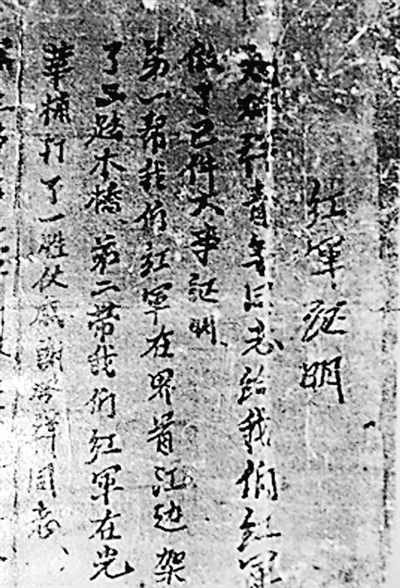 红军证明
青年同志给我们红军
做了己件大事证明、
第一帮我们红军在界首江边架
了三趟木桥、第二带我们红军在光
华铺打了一胜仗感谢 同志、